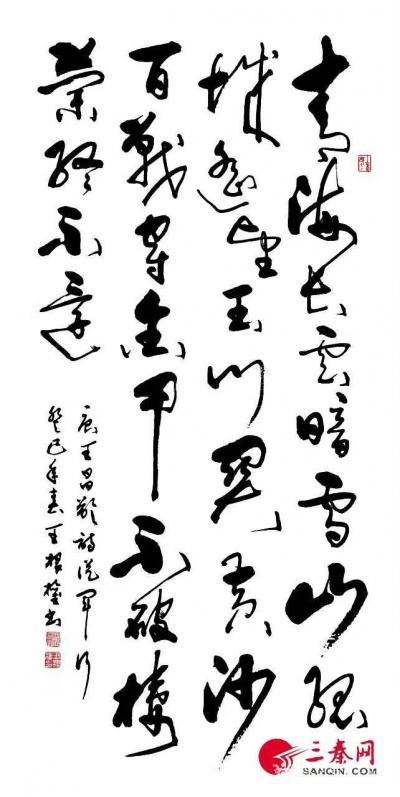 青海长雲暗雪山孤
城遥望玉门關黄沙
百戰穿金甲不破楼
蘭终不還
唐王昌龄詩从军行
癸巳年春王根權书
三秦网
SANQIN.COM